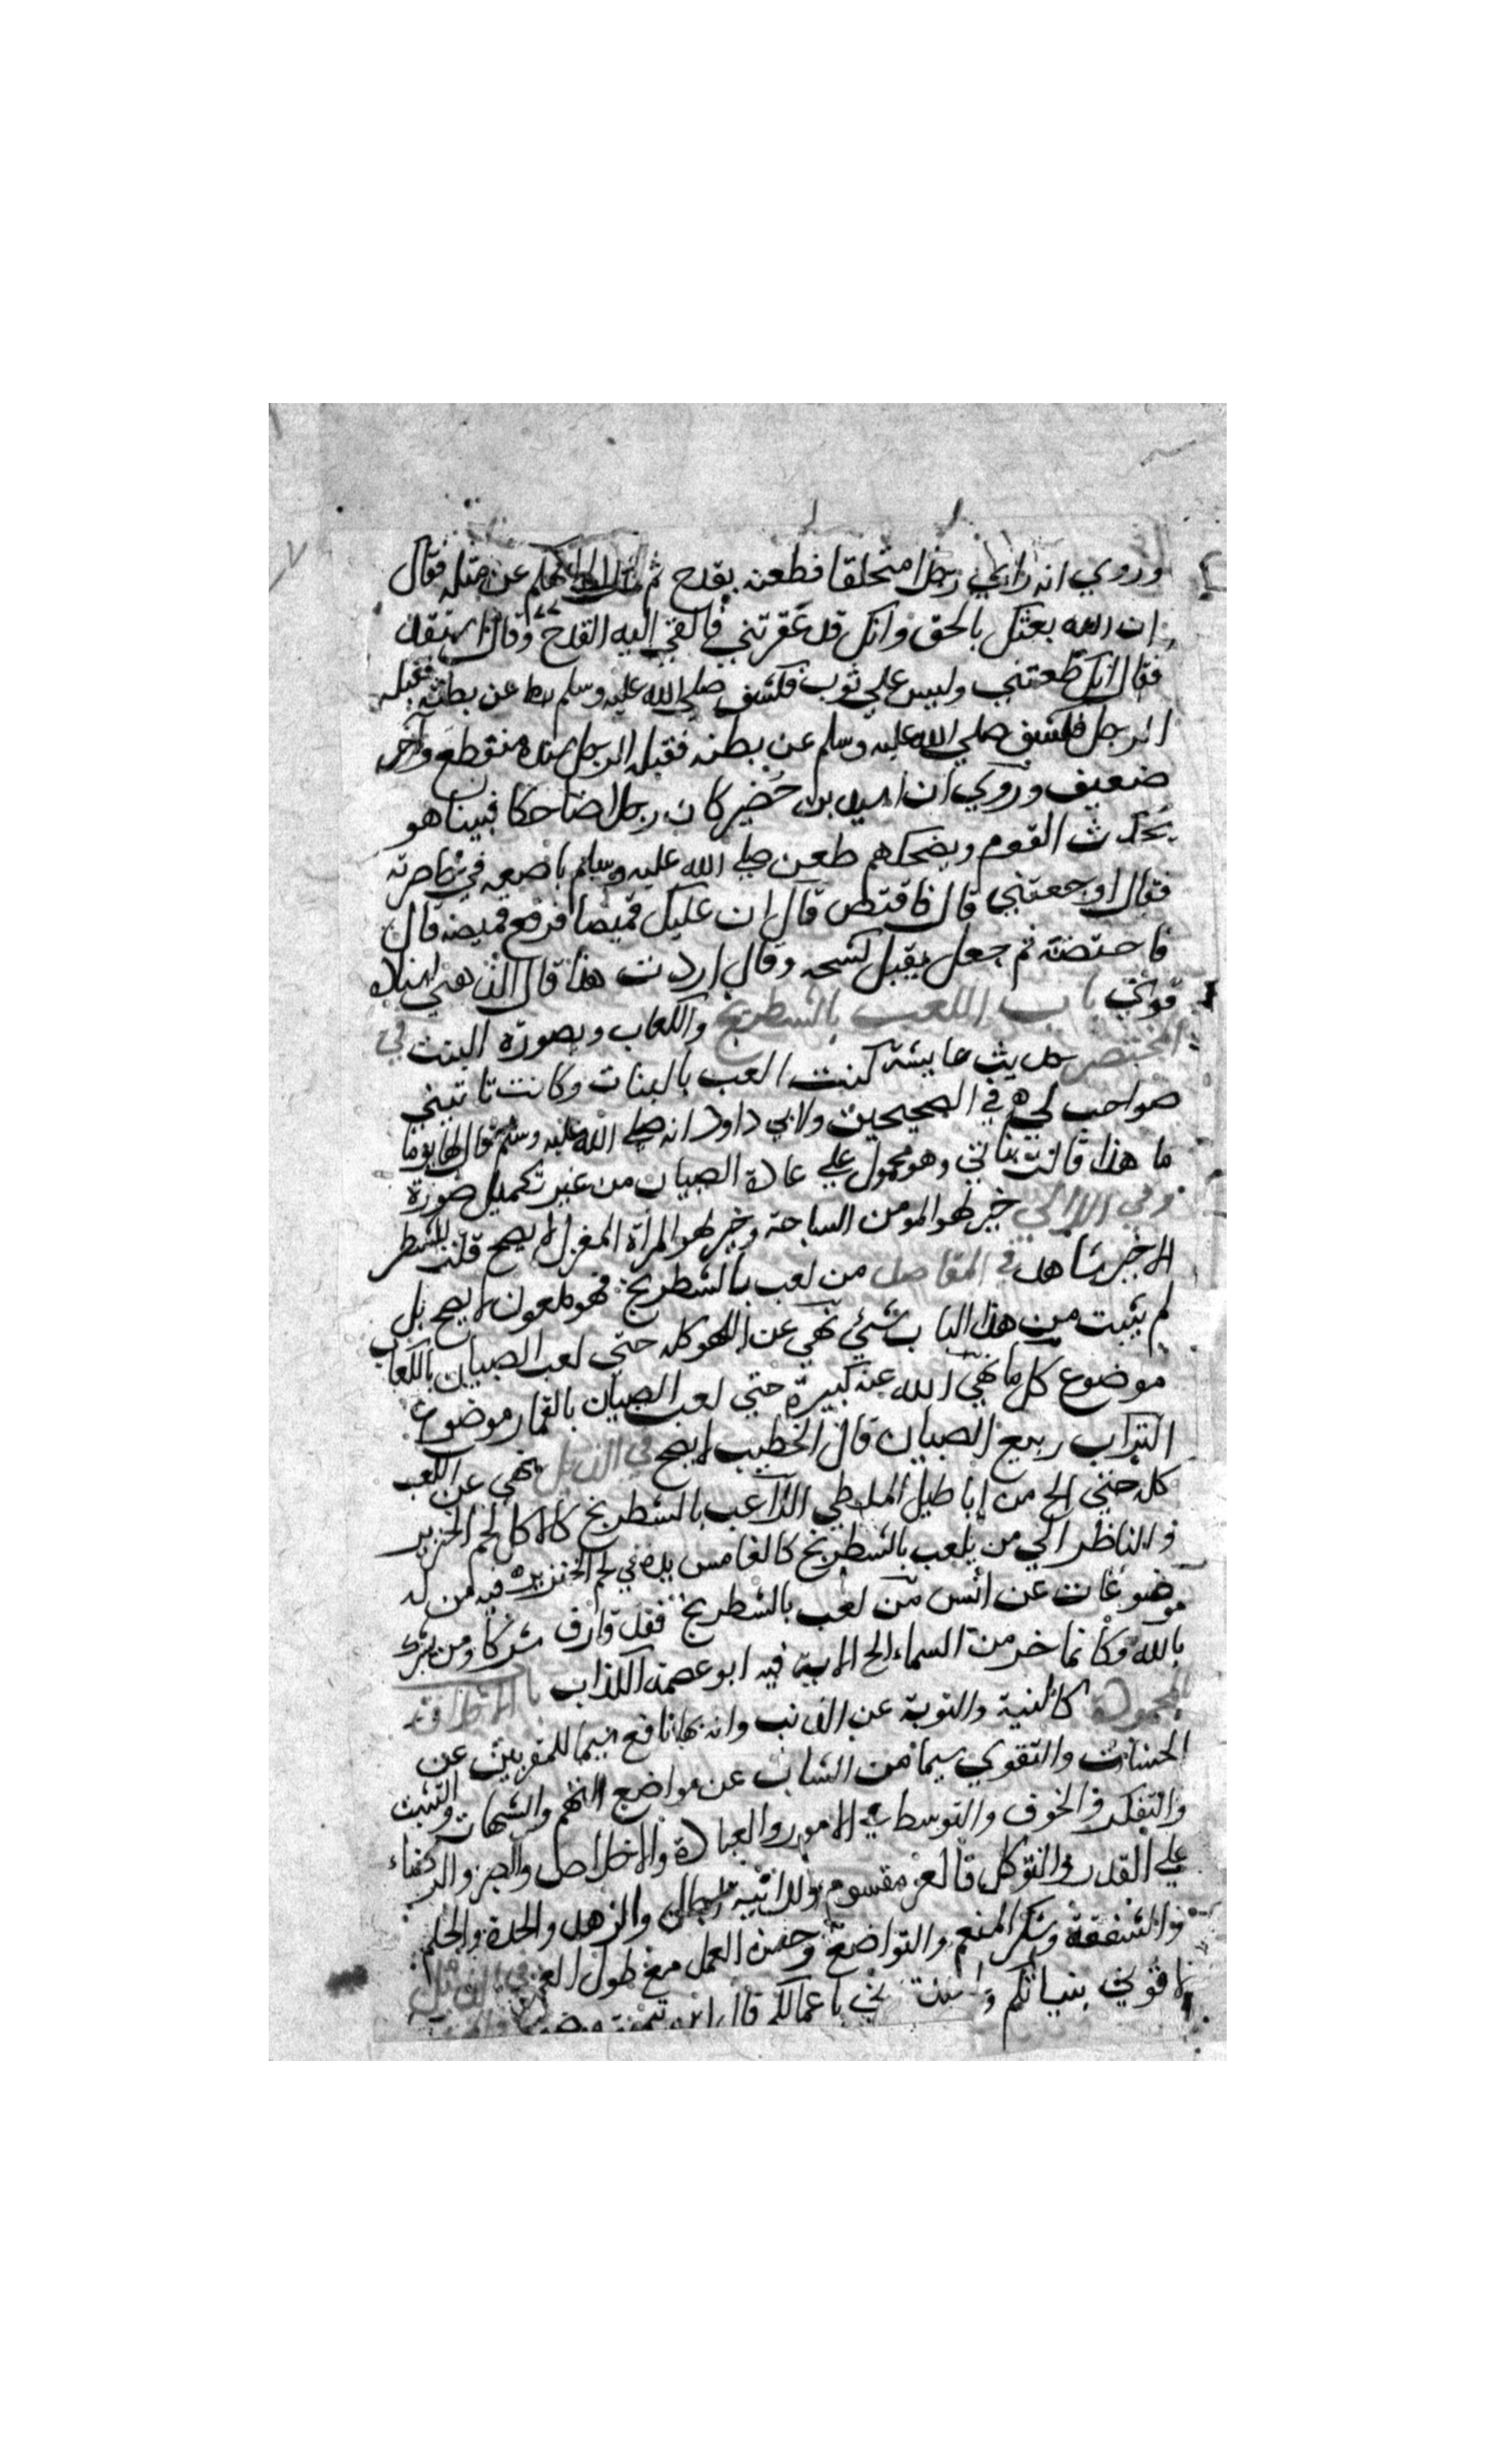 وروي انه راي رجلا متخلقا فطعنه بقدح ثم قال الم انهكم عن مثله فقال
ان الله بعثك بالحق وانك قد عقرتني فالقي اليه القدح وقال استقد
فقال انك طعنتني وليس علي ثوب فكشف صلي الله عليه وسلم عن بطنه فقبله
الرجل فكشف صلي الله عليه وسلم عن بطنه فقبله الرجل سنده منقطع وآخر
ضعيف وروي ان اسيد بن حضير كان رجلا ضاحكا فبينا هو
يحدث القوم ويضحكهم طعن صلي الله عليه وسلم باصبعه في خاصرته
فقال اوجعتني قال فاقتص قال ان عليك قميصا فرفع قميصه قال
فاحتضنه ثم جعل يقبل كشحه وقال اردت هذا قال الذهبي اسناده
قوي باب اللعب بالشطرنج والكعاب وبصورة البنت في
المختصر حديث عايشة كنت العب بالبنات وكانت تاتيني
صواحب لي في الصحيحين ولابي داود انه صلي الله عليه وسلم قال لها يوما
ما هذا قالت بناتي وهو محمول علي عادة الصبيان من غير تكميل صورة
وفي اللالي خير لهو المومن السباحة وخير لهو المرأة المغزل لا يصح قلت للشطر
الاخير شاهد في المقاصد من لعب بالشطرنج فهو ملعون لا يصح بل
لم يثبت من هذا الباب شيئ نهي عن اللهو كله حتي لعب الصبيان بالكعاب
موضوع كل ما نهي الله عنه كبيرة حتي لعب الصبيان بالقمار موضوع
التراب ربيع الصبيان قال الخطيب لا يصح في الذيل نهي عن اللعب
كله حتي الخ من اباطيل الملطي اللاعب بالشطرنج كالاكل لحم الخنزير
والناظر الي من يلعب بالشطرنج كالغامس يده في لحم الخنزير فيه من له
موضوعات عن انس من لعب بالشطرنج فقد قارف شركا ومن يشرك
بالله فكانما خر من السماء الخ الاية فيه ابو عصمة الكذاب باب الاخلاق
المحمودة كالنية والتوبة عن الذنب وانه بها نافع سيما للمقربين عن
الحسنات والتقوي سيما من الشاب عن مواضع التهم والشبهات والتثبت
والتفكر والخوف والتوسط في الامور والعبادة والاخلاص والصبر والرضاء
علي القدر والتوكل مقسوم والزهد والحدة والحلم
والشفقة وشكر المنعم والتواضع وحسن العمل مع طول العمر في الذيل
لاقوني بنياتكم ولا تلاقوني باعمالكم قال ابن تيمية موضوع